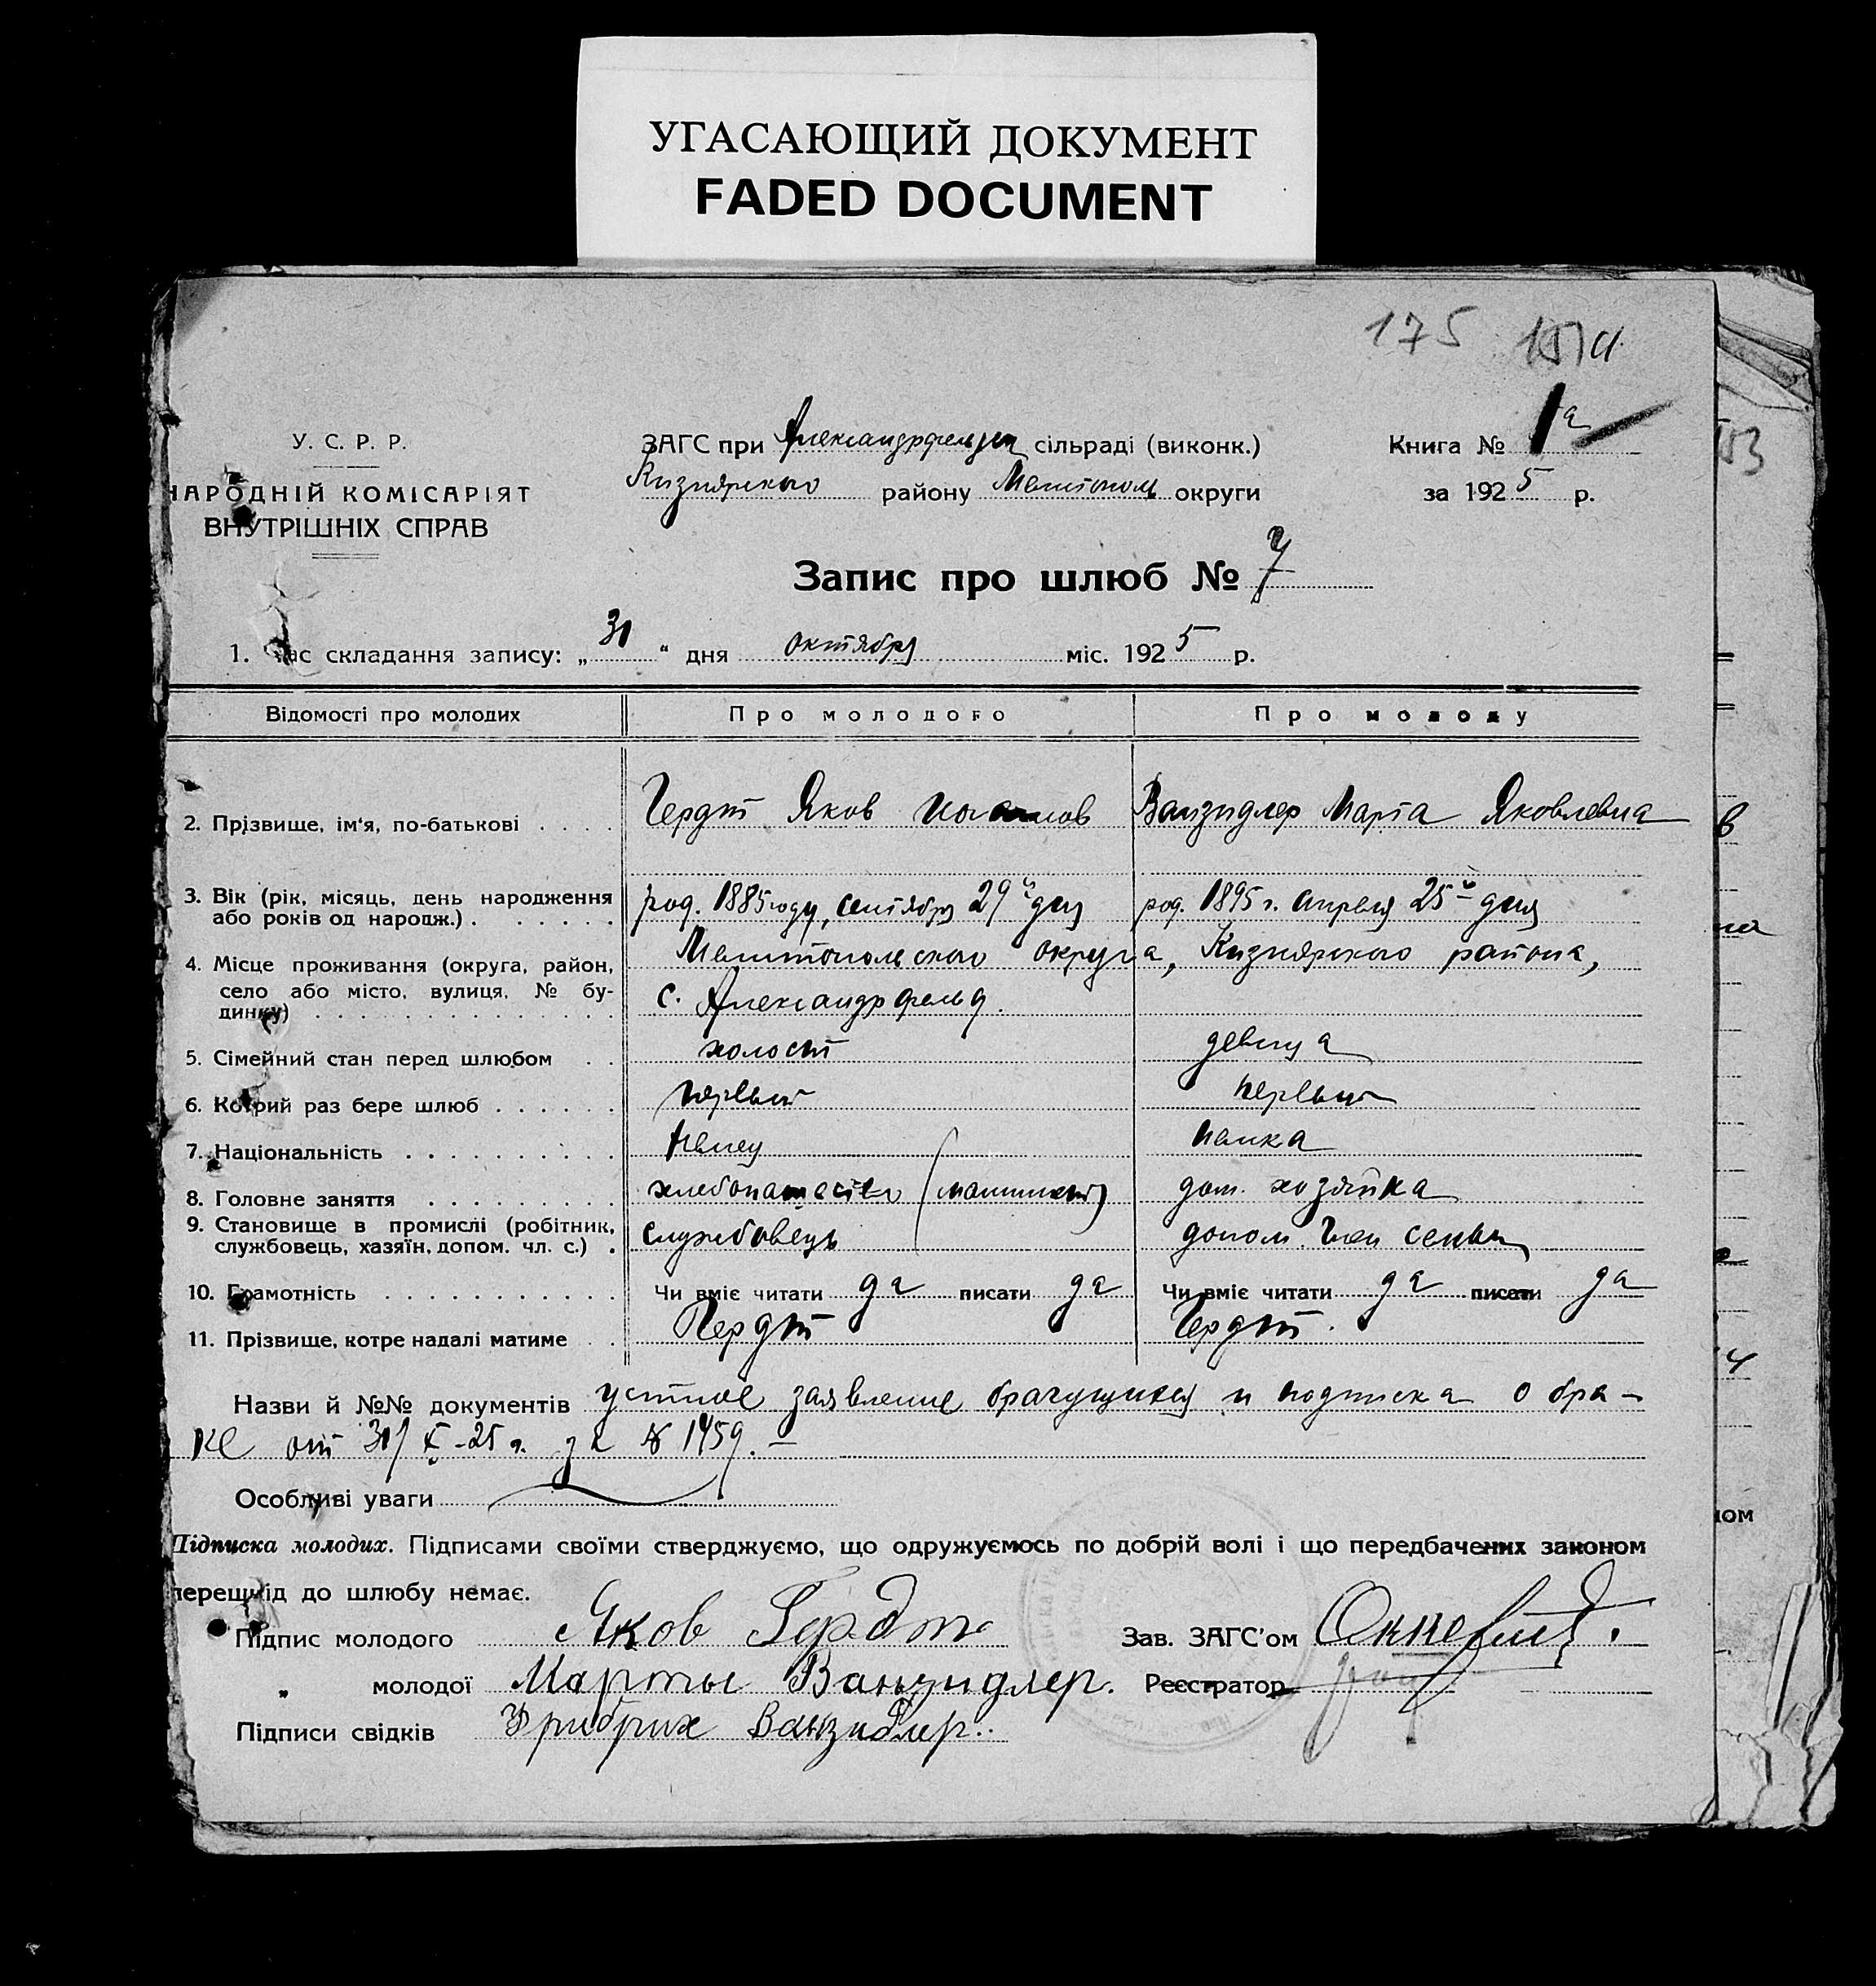 УГАСАЮЩИЙ ДОКУМЕНТ
FADED DOCUMENT
175
У. С. Р. Р.
НАРОДНІЙ КОМІСАРІЯТ
ВНУТРІШНІХ СПРАВ
ЗАГС при Александрфельдск сільраді (виконк.)
Кизиярского району Мелитополь округи
Книга № 1а
за 1925 р.
Запис про шлюб № 7
1. Час складання запису: „31“ дня октября міс. 1925 р.
Відомості про молодих Про молодого Про молоду
2. Прізвище, ім'я, по-батькові . . . . Гердт Яков Ванзидлер Марта Яковлевна
3. Вік (рік, місяць, день народження або років од народж.) . . . . . . род. 1885 году, сентября 29го дня род. 1895 г. апреля 25го дня
4. Місце проживання (округа, район, село або місто, вулиця, № будинку) . . . Мелитопольского округа, Кизиярского района,
с. Александрфельд.
5. Сімейний стан перед шлюбом . . холост девица
6. Котрий раз бере шлюб . . . . . . первый первый
7. Національність . . . . . . . . . . немец немка
8. Головне заняття . . . . . . . . . хлебопашество (машинист) дом. хозяйка
9. Становище в промислі (робітник, службовець, хазяїн, допом. чл. с.) . службовець допом. член семьи
10. Грамотність . . . . . . . . . . . Чи вміє читати да писати да Чи вміє читати да писати да
11. Прізвище, котре надалі матиме . . Гердт Гердт.
Назви й №№ документів устное заявление брачущихся и подписка о бра-
ке от 31/X-25 г. за № 1459. –
Особливі уваги
Підписка молодих. Підписами своїми стверджуємо, що одружуємось по добрій волі і що передбачених законом
перешкід до шлюбу немає.
Підпис молодого Яков Гердт Зав. ЗАГС'ом
„ молодої Марты Ванзидлер. Реєстратор
Підписи свідків Фридрих Ванзидлер.